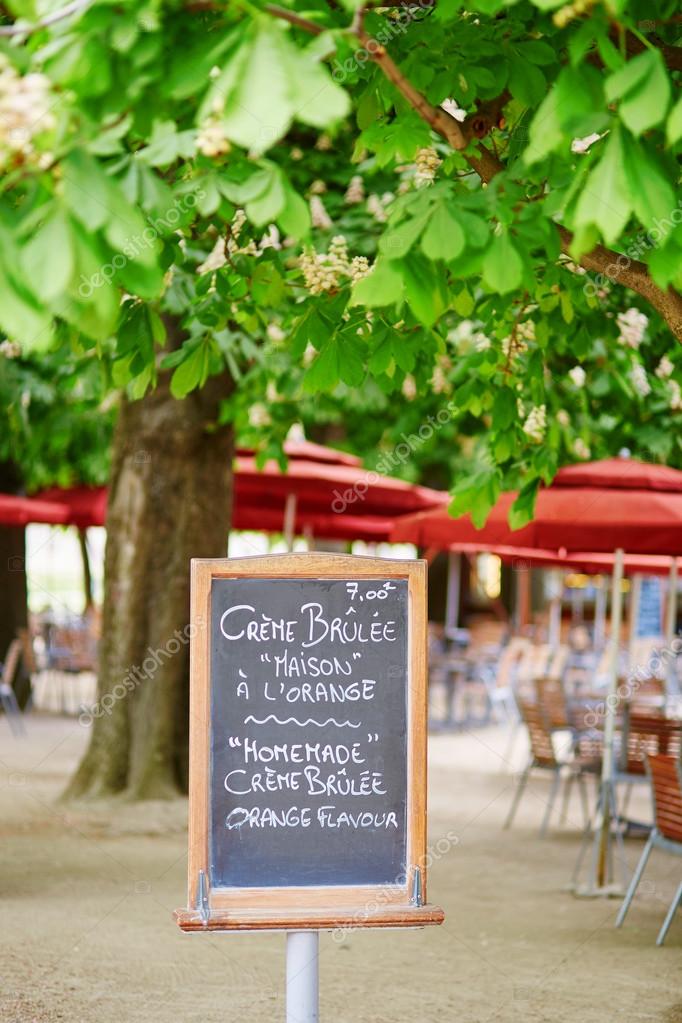 7,00€
CRÈME BRÛLÉE
"MAISON"
À L'ORANGE
"HOMEMADE"
CRÈME BRÛLÉE
ORANGE FLAVOUR
depositphotos